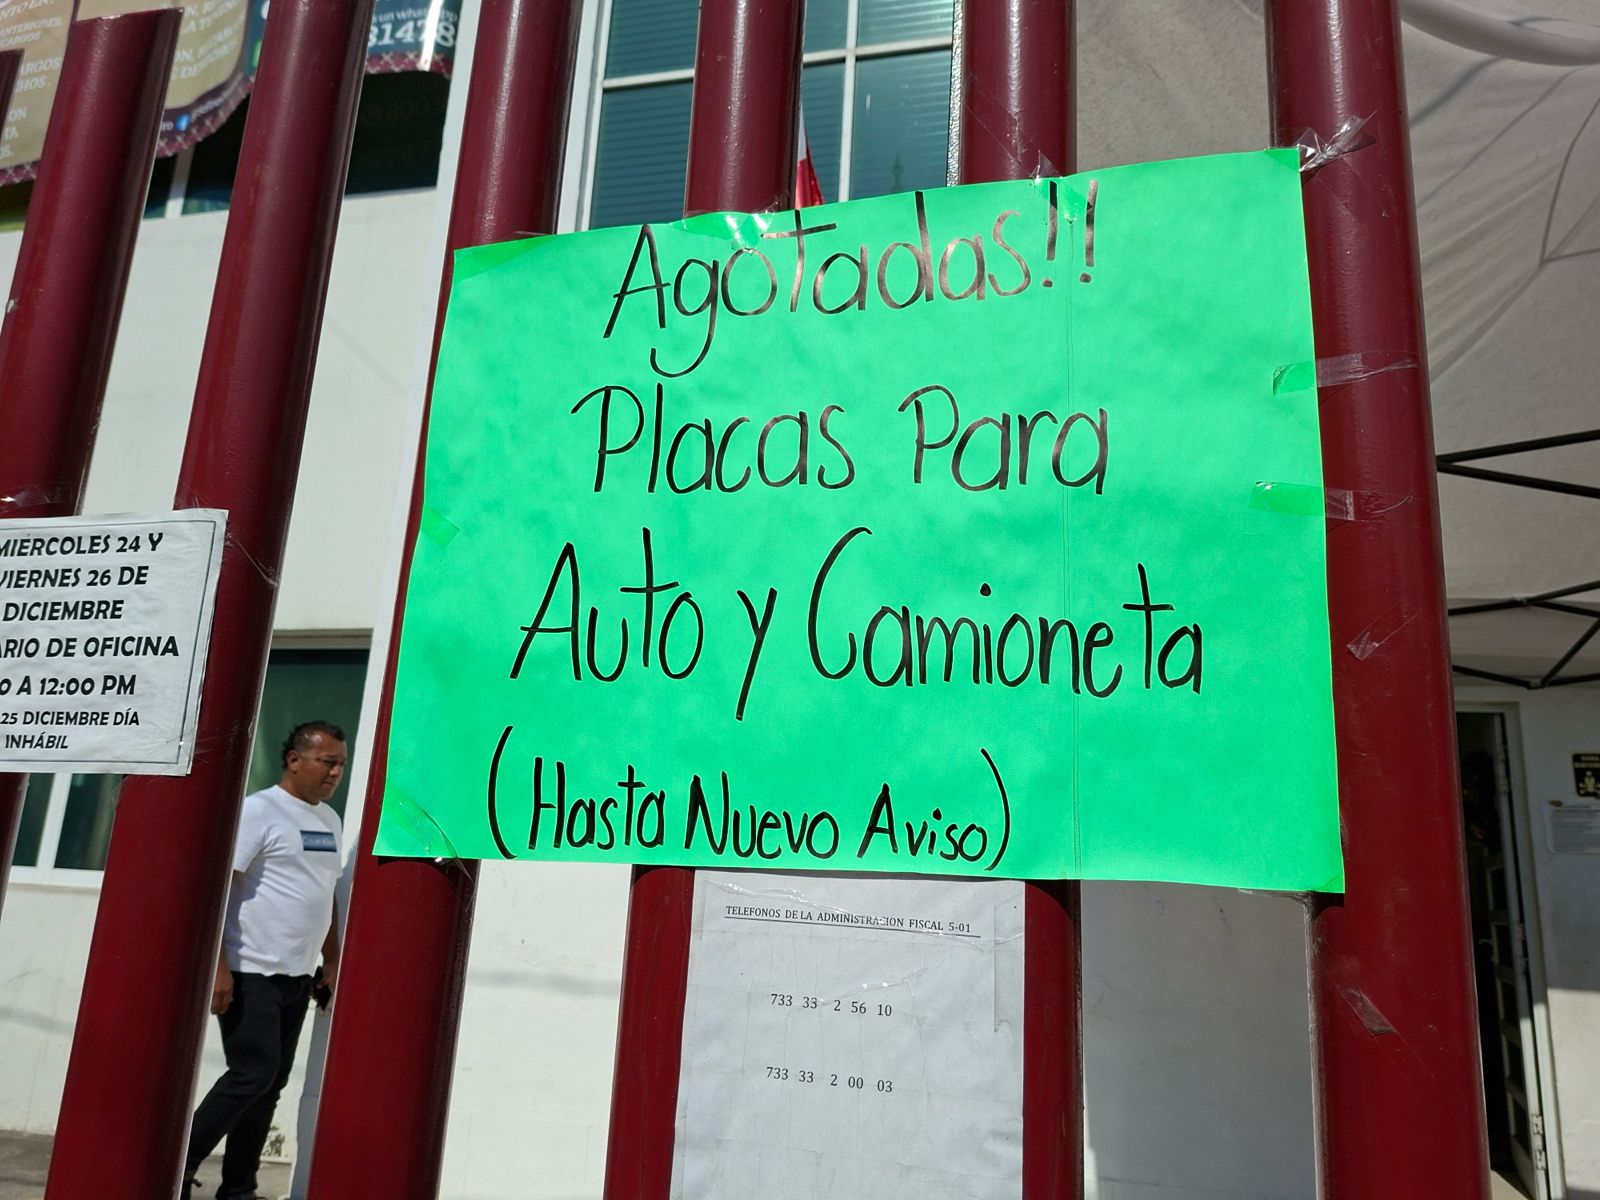 Agotadas!!
Placas Para
Auto y Camioneta
(Hasta Nuevo Aviso)
MIÉRCOLES 24 Y
VIERNES 26 DE
DICIEMBRE
ARIO DE OFICINA
0 A 12:00 PM
25 DICIEMBRE DÍA
INHÁBIL
TELEFONOS DE LA ADMINISTRACION FISCAL 5-01
733 33 2 56 10
733 33 2 00 03
81478